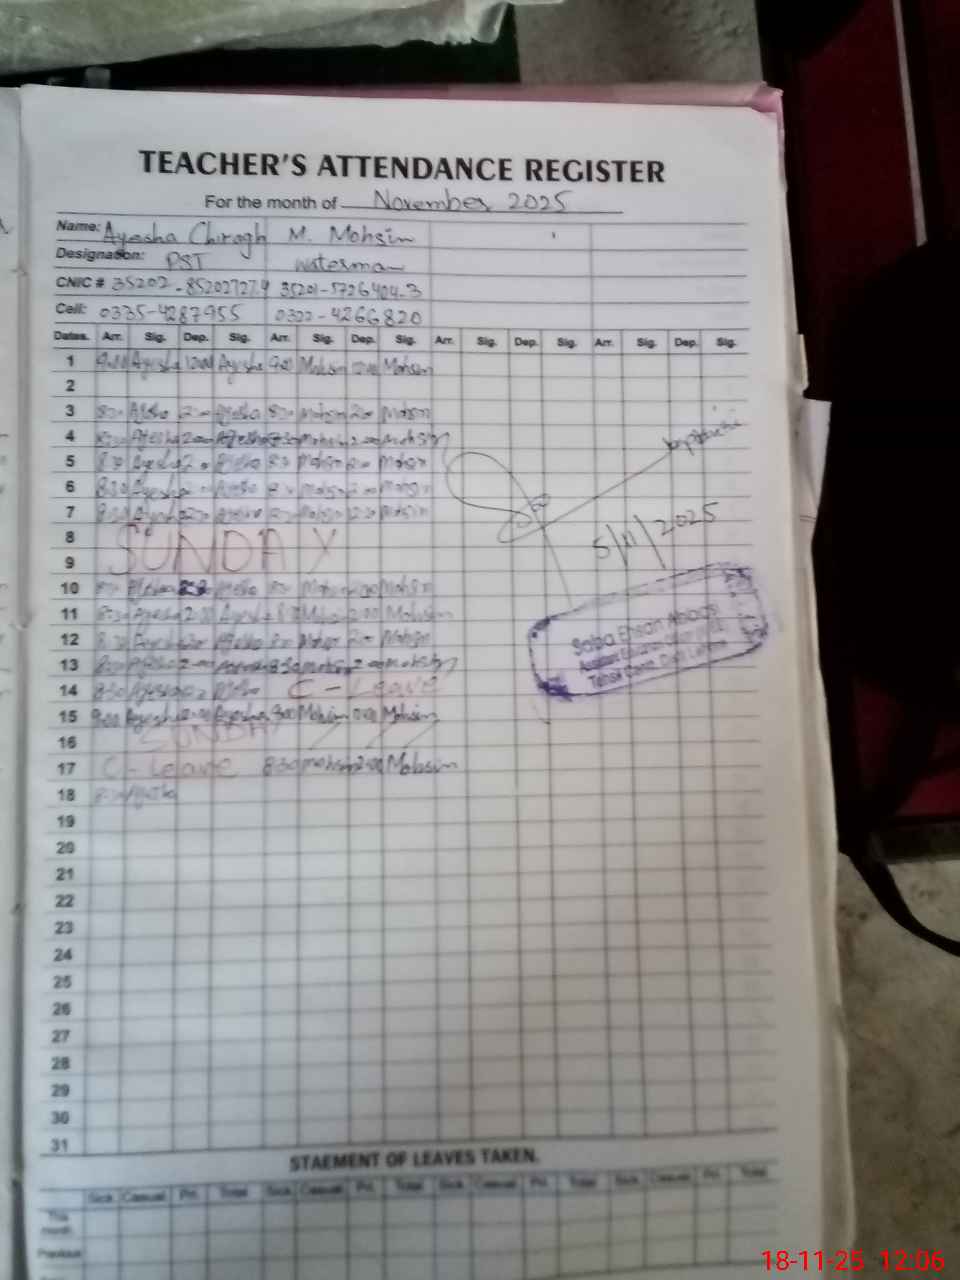 TEACHER'S ATTENDANCE REGISTER
For the month of November 2025
Name: Ayesha Chiragh M. Mohsin
Designation: PST waterman
CNIC # 35202-85202727.9 35201-5726404-3
Cell: 0335-4287955 0322-4266820
Dates. Arr. Sig. Dep. Sig. Arr. Sig. Dep. Sig. Arr. Sig. Dep. Sig. Arr. Sig. Dep. Sig.
1 9:00 Ayesha 12:00 Ayesha 9:00 Mohsin 12:00 Mohsin
2
3 8:30 Ayesha 2:00 Ayesha 8:30 Mohsin 2:00 Mohsin
4 8:30 Ayesha 2:00 Ayesha 8:30 Mohsin 2:00 Mohsin
5 8:30 Ayesha Ayesha 8:30 Mohsin 2:00 Mohsin
6 8:30 Ayesha Ayesha Mohsin Mohsin
7 8:30 Ayesha Ayesha Mohsin Mohsin
5/11/2025
8
SUNDAY
9
10 Ayesha Ayesha Mohsin Mohsin
11 8:30 Ayesha 2:00 Ayesha Mohsin 2:00 Mohsin
Saba Ehsan
12 8:30 Ayesha Ayesha Mohsin 2:00 Mohsin
13 8:30 Ayesha 2:00 8:30 Mohsin 2:00 Mohsin
14 8:30 Ayesha Ayesha C - Leave
15 9:00 Ayesha 12:00 Ayesha 9:00 Mohsin Mohsin
16 SUNDAY
17 C - Leave 8:30 Mohsin 2:00 Mohsin
18 8:30 Ayesha
19
20
21
22
23
24
25
26
27
28
29
30
31
STAEMENT OF LEAVES TAKEN.
Sick Casual Pri. Total Sick Casual Pri. Total Sick Casual Pri. Total Sick Casual Pri. Total
This month
Previous
18-11-25 12:06